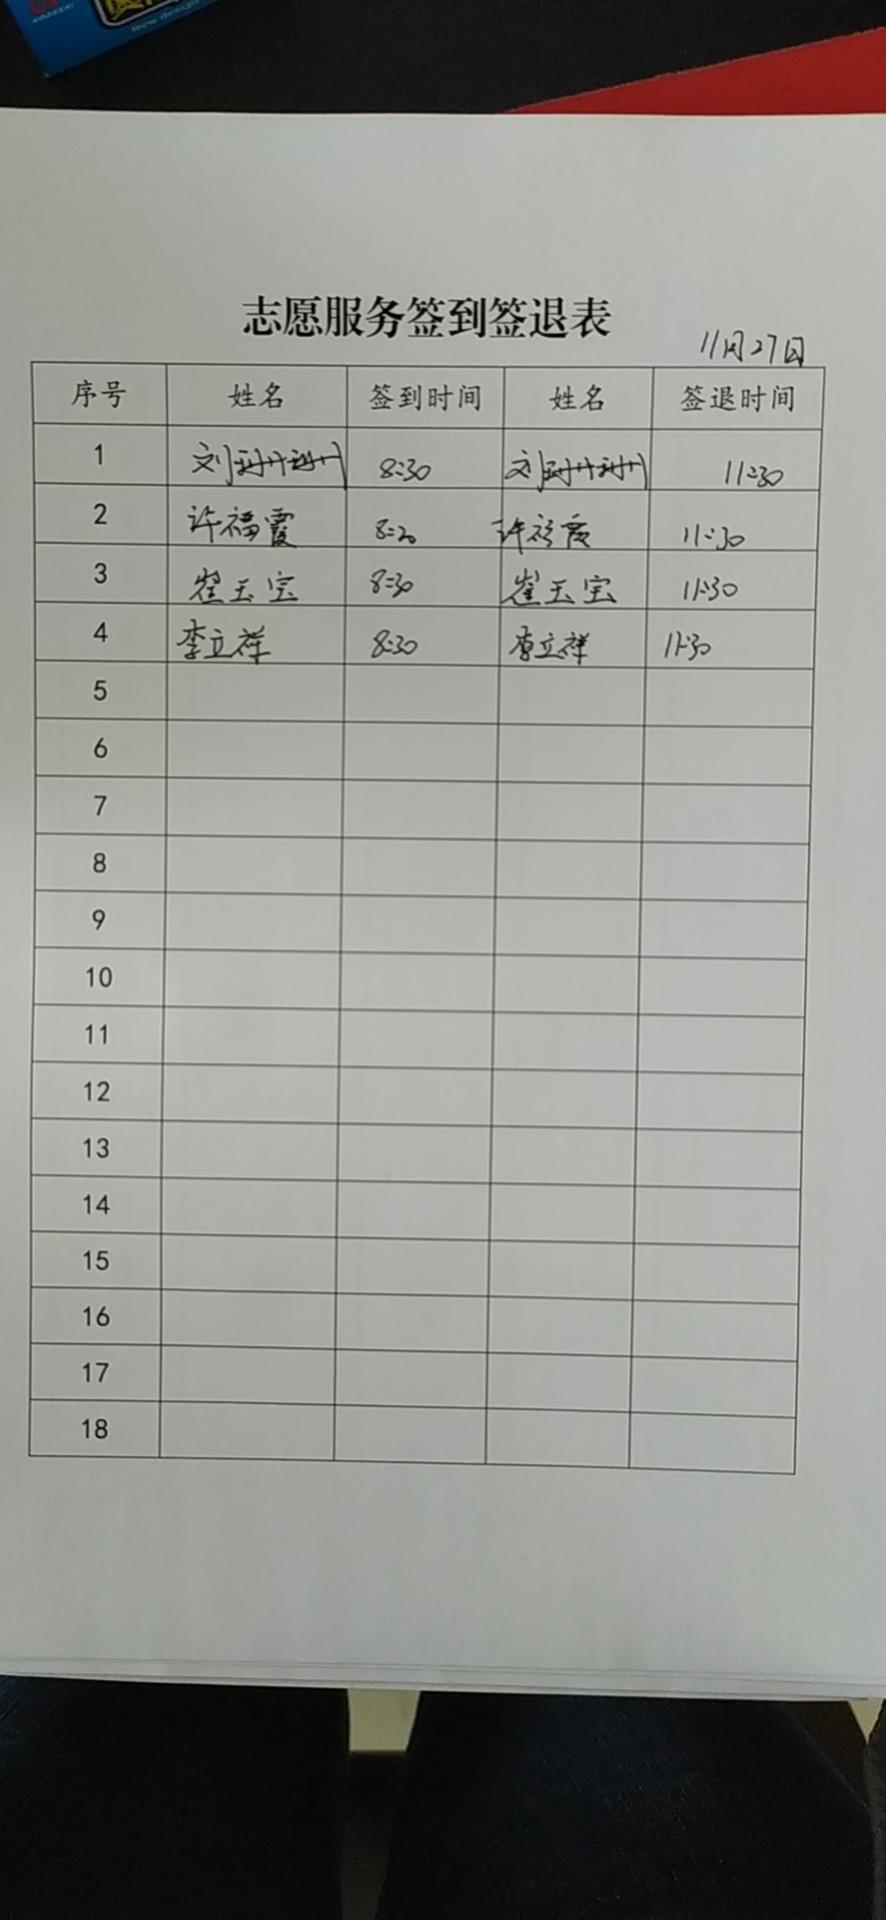 志愿服务签到签退表
11月27日
序号 姓名 签到时间 姓名 签退时间
1 刘珊珊 8:30 刘珊珊 11:30
2 许福霞 8:30 许福霞 11:30
3 崔玉宝 8:30 崔玉宝 11:30
4 李立祥 8:30 李立祥 11:30
5
6
7
8
9
10
11
12
13
14
15
16
17
18